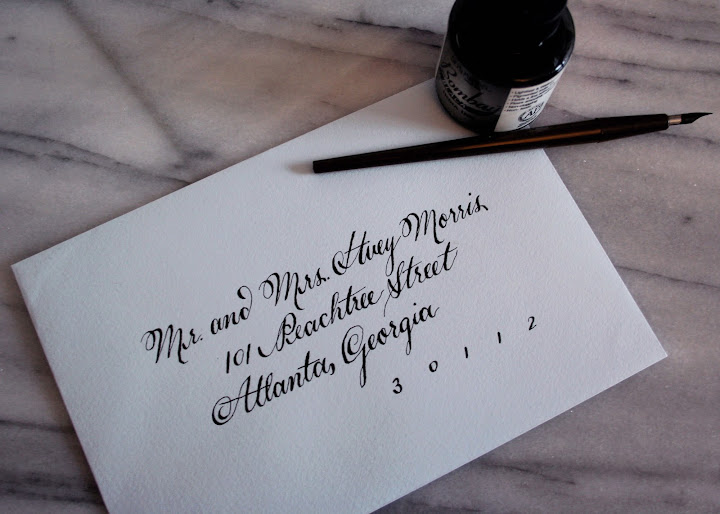 Mr. and Mrs. Huey Morris
101 Peachtree Street
Atlanta, Georgia
30112